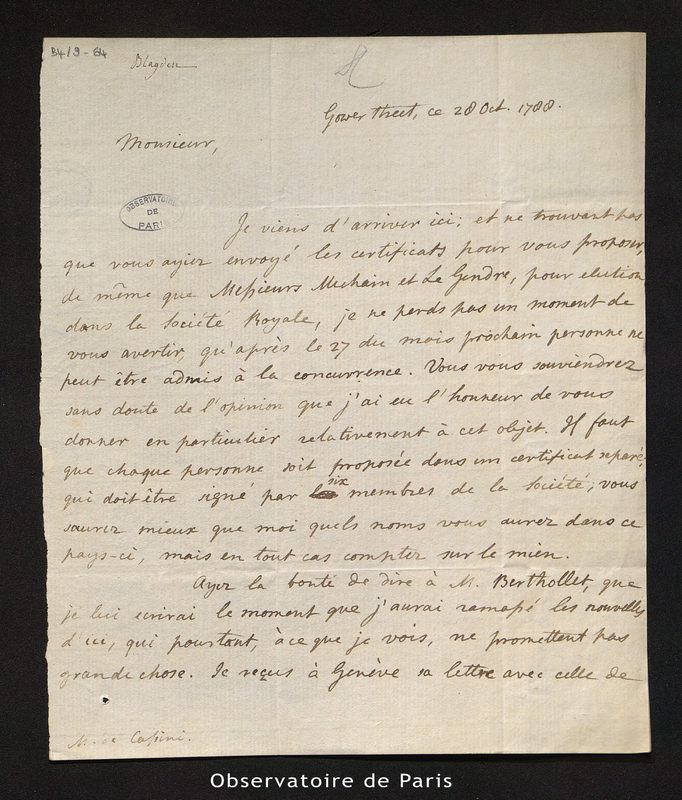 B4/9-64
Blagden
Gower Street, ce 28 Oct. 1788.
Monsieur,
OBSERVATOIRE
DE
PARI
Je viens d'arriver ici; et ne trouvant pas
que vous ayiez envoyé les certificats pour vous proposer,
de même que Messieurs Mechain et Le Gendre, pour election
dans la Société Royale, je ne perds pas un moment de
vous avertir, qu'après le 27 du mois prochain personne ne
peut être admis à la concurrence. Vous vous souviendrez
sans doute de l'opinion que j'ai eu l'honneur de vous
donner en particulier relativement à cet objet. Il faut
que chaque personne soit proposée dans un certificat separé,
qui doit être signé par six membres de la Société; vous
saurez mieux que moi quels noms vous aurez dans ce
pays-ci, mais en tout cas comptez sur le mien.
Ayez la bonté de dire à M. Berthollet, que
je lui ecrirai le moment que j'aurai ramassé les nouvelles
d'ici, qui pourtant, à ce que je vois, ne promettent pas
grande chose. Je reçus à Genève sa lettre avec celle de
M. de Cassini.
Observatoire de Paris